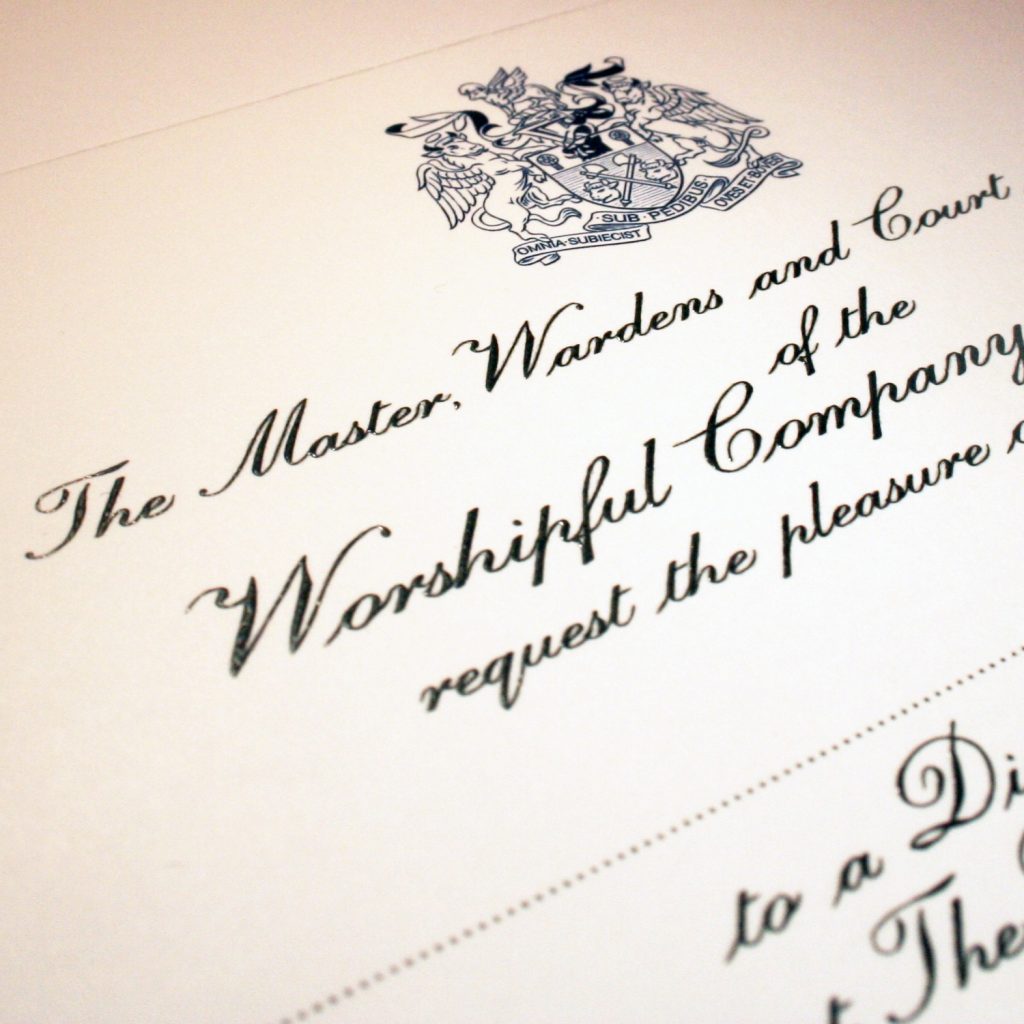 OMNIA · SUBIECIST · SUB · PEDIBUS OVES ET BOVES
The Master, Wardens and Court
of the
Worshipful Company
request the pleasure
to a